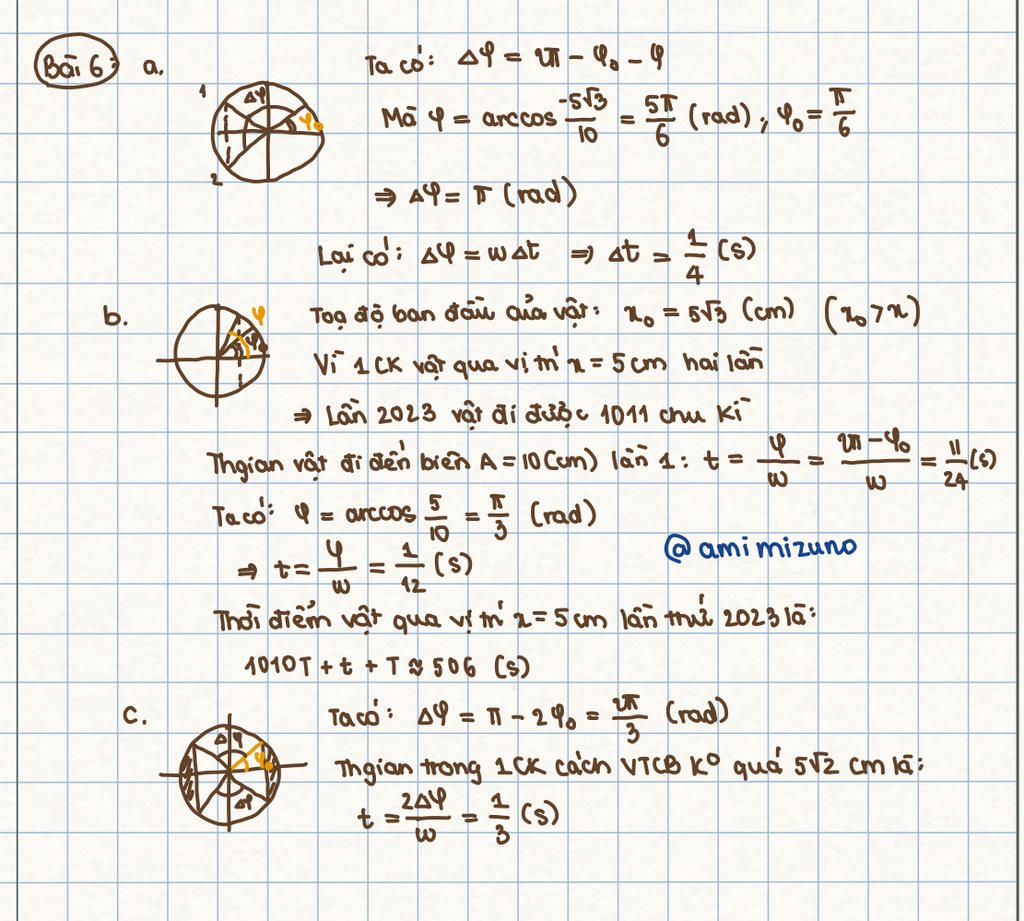 Bài 6: a.
Ta có: Δφ = 2π - φ₀ - φ
1 Δφ φ₀
Mà φ = arccos -5√3/10 = 5π/6 (rad), φ₀ = π/6
2
⇒ Δφ = π (rad)
Lại có: Δφ = ωΔt ⇒ Δt = 1/4 (s)
b.
φ
φ₀
Toạ độ ban đầu của vật: x₀ = 5√3 (cm) (x₀ > x)
Vì 1 CK vật qua vị trí x = 5 cm hai lần
⇒ Lần 2023 vật đi được 1011 chu kì
Thgian vật đi đến biên A = 10 (cm) lần 1: t = φ/ω = (2π - φ₀)/ω = 11/24 (s)
Ta có: φ = arccos 5/10 = π/3 (rad)
@amimizuno
⇒ t = φ/ω = 1/12 (s)
Thời điểm vật qua vị trí x = 5 cm lần thứ 2023 là:
1010T + t + T ≈ 506 (s)
c.
Ta có: Δφ = π - 2φ₀ = 2π/3 (rad)
Δφ φ₀
Δφ
Thgian trong 1CK cách VTCB k⁰ quá 5√2 cm là:
t = 2Δφ/ω = 1/3 (s)